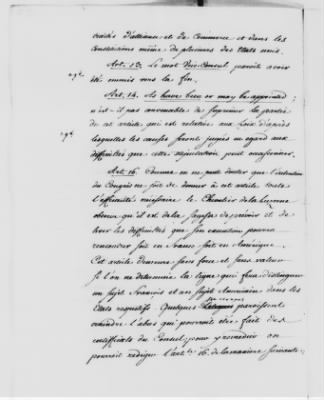 traités d'alliance et de Commerce et dans les
constitutions même de plusieurs des Etats unis.
Art. 12. Le mot Vice Consul paroit avoir
été ommis vers la fin.
Art. 14. As have been or may be appointed;
n'est-il pas convenable de supprimer la partie
de cet article qui est relative aux Loix d'après
lesquelles les causes seront jugées en egard aux
difficultés que cette stipulation peut occasionner.
Art. 16. Comme on ne peut douter que l'intention
du Congrès ne soit de donner à cet article toute
l'efficacité nécessaire le Chevalier de la Luzerne
observe qu'il est de la sagesse de prévoir et de
lever les difficultés que son exécution pourra
rencontrer soit en France soit en Amérique.
Cet article demeure sans force et sans valeur
si l'on ne détermine la ligne qui fera distinguer
un sujet François et un sujet Américain dans les
Etats respectifs. Quelques paroissent
craindre l'abus qui pourroit etre fait des
certificats du Consul; pour y remédier on
pourroit rédiger l'art. 16. de la maniere suivante.